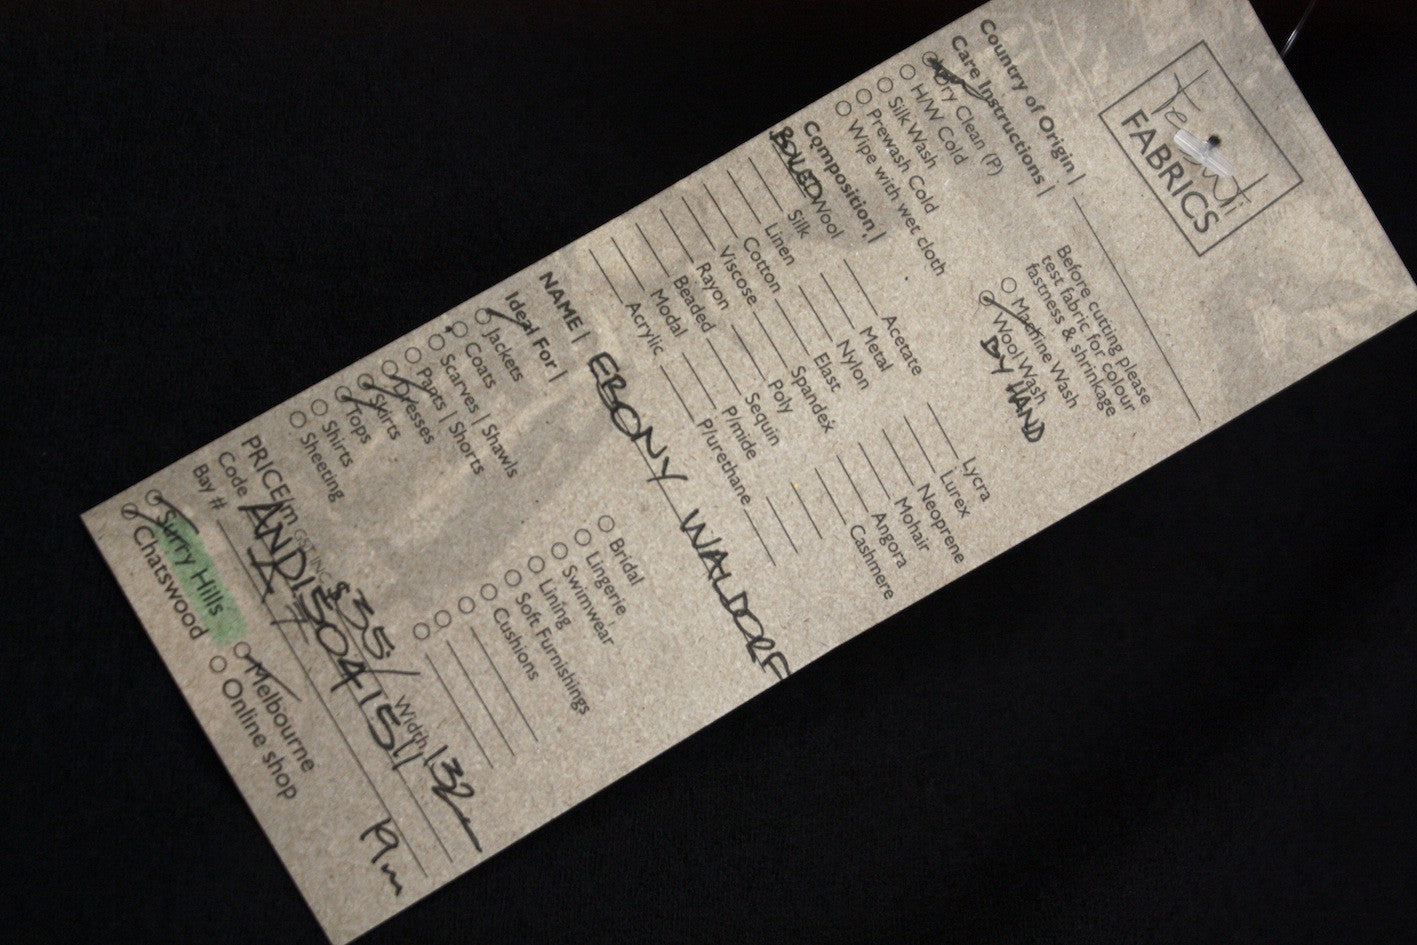 Tessuti
FABRICS
Country of Origin |
Care Instructions |
Dry Clean (P)
H/W Cold
Silk Wash
Prewash Cold
Wipe with wet cloth
Before cutting please
test fabric for colour
fastness & shrinkage
Machine Wash
Wool Wash
BY HAND
Composition |
BOILED Wool
Silk
Linen
Cotton
Viscose
Rayon
Beaded
Modal
Acrylic
Acetate
Metal
Nylon
Elast
Spandex
Poly
Sequin
P/mide
P/urethane
Lycra
Lurex
Neoprene
Mohair
Angora
Cashmere
NAME | EBONY WALDORF
Ideal For |
Jackets
Coats
Scarves | Shawls
Pants | Shorts
Dresses
Skirts
Tops
Shirts
Sheeting
Bridal
Lingerie
Swimwear
Lining
Soft Furnishings
Cushions
PRICE/m GST INC $35/ Width 132
Code
Bay #
19m
Surry Hills
Chatswood
Melbourne
Online shop